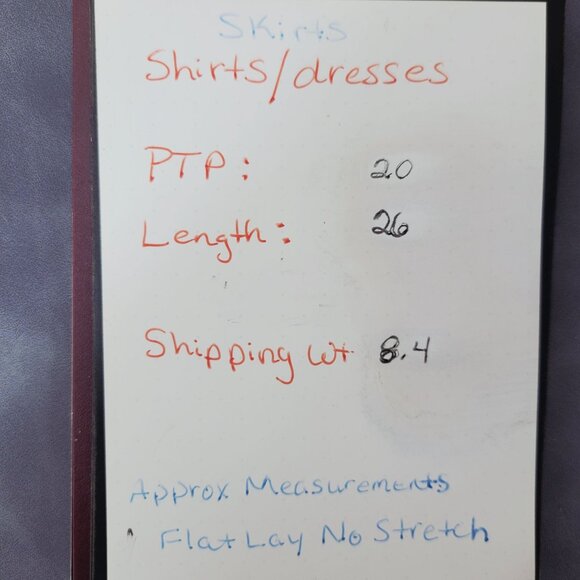 Skirts
Shirts/dresses
PTP: 20
Length: 26
Shipping Wt 8.4
Approx Measurements
Flat Lay No Stretch